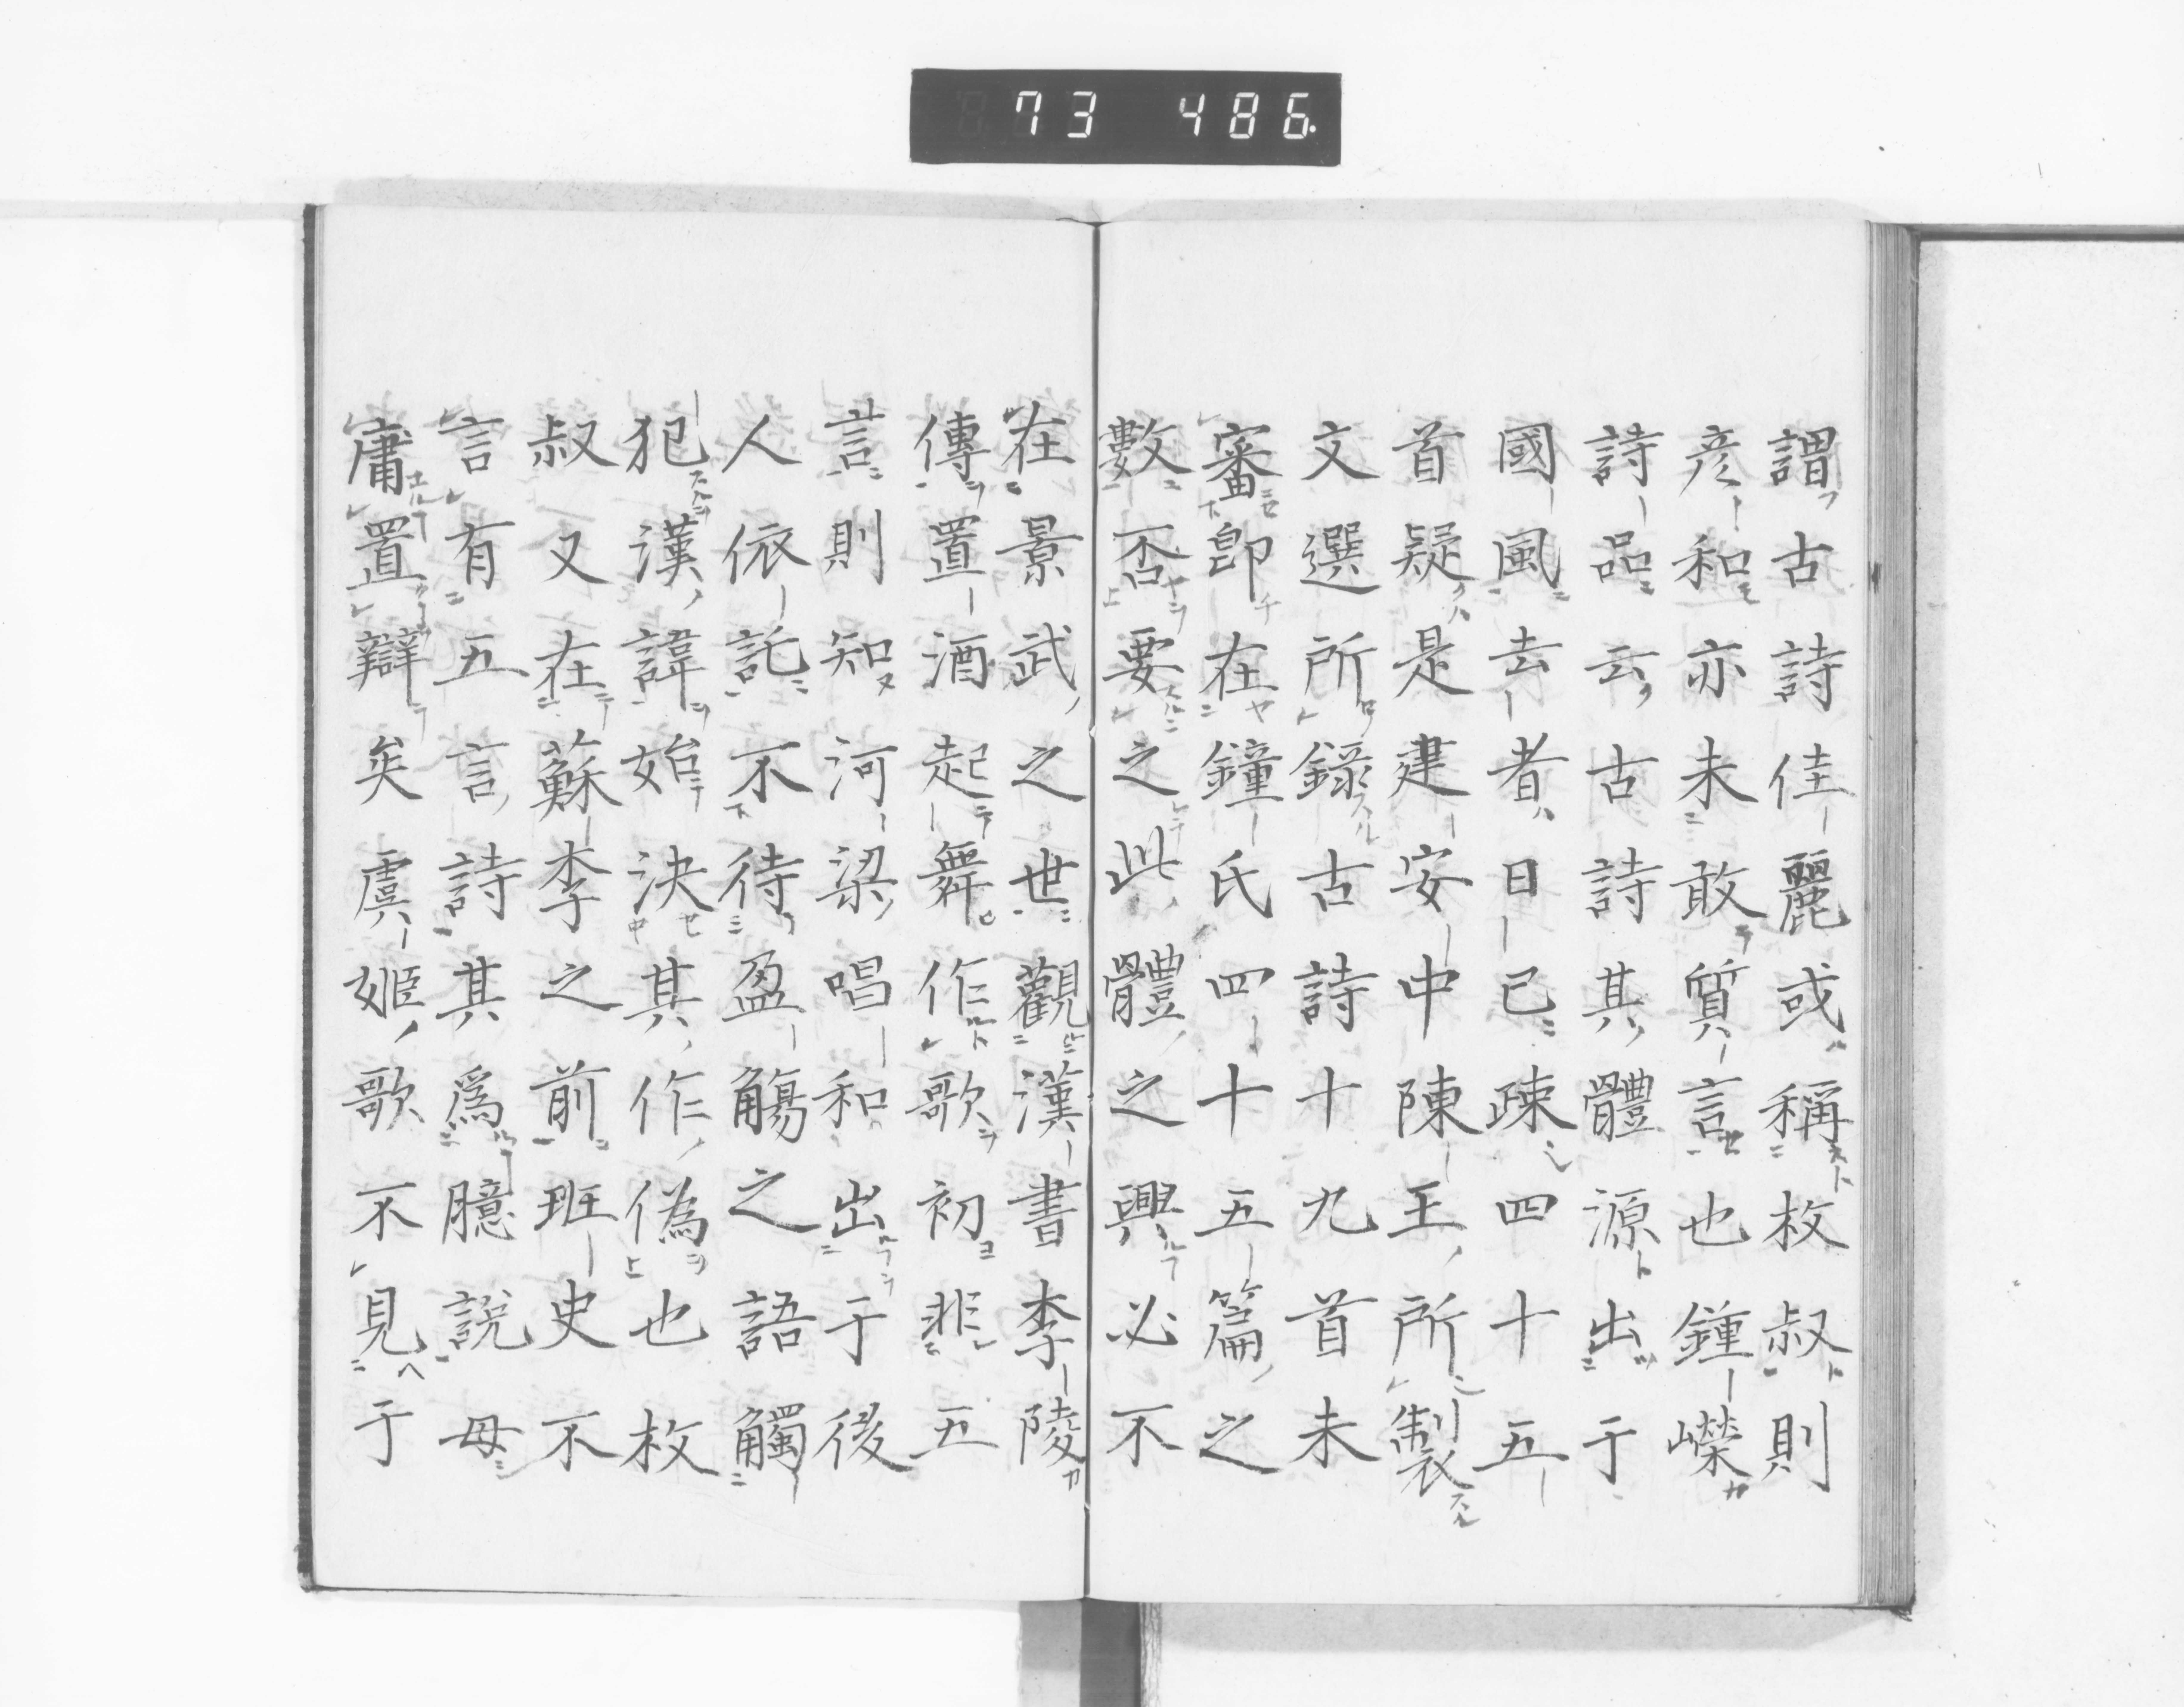 73 486.
謂古詩佳麗或稱枚叔則
彦和亦未敢質言也鍾嶸
詩品云古詩其體源出于
國風去者日已疎四十五
首疑是建安中陳王所製
文選所錄古詩十九首未
審卽在鐘氏四十五篇之
數否要之此體之興必不
在景武之世觀漢書李陵
傳置酒起舞作歌初非五
言則知河梁唱和出于後
人依託不待盈觴之語觸
犯漢諱始決其作偽也枚
叔又在蘇李之前班史不
言有五言詩其爲臆說毋
庸置辯矣虞姬歌不見于